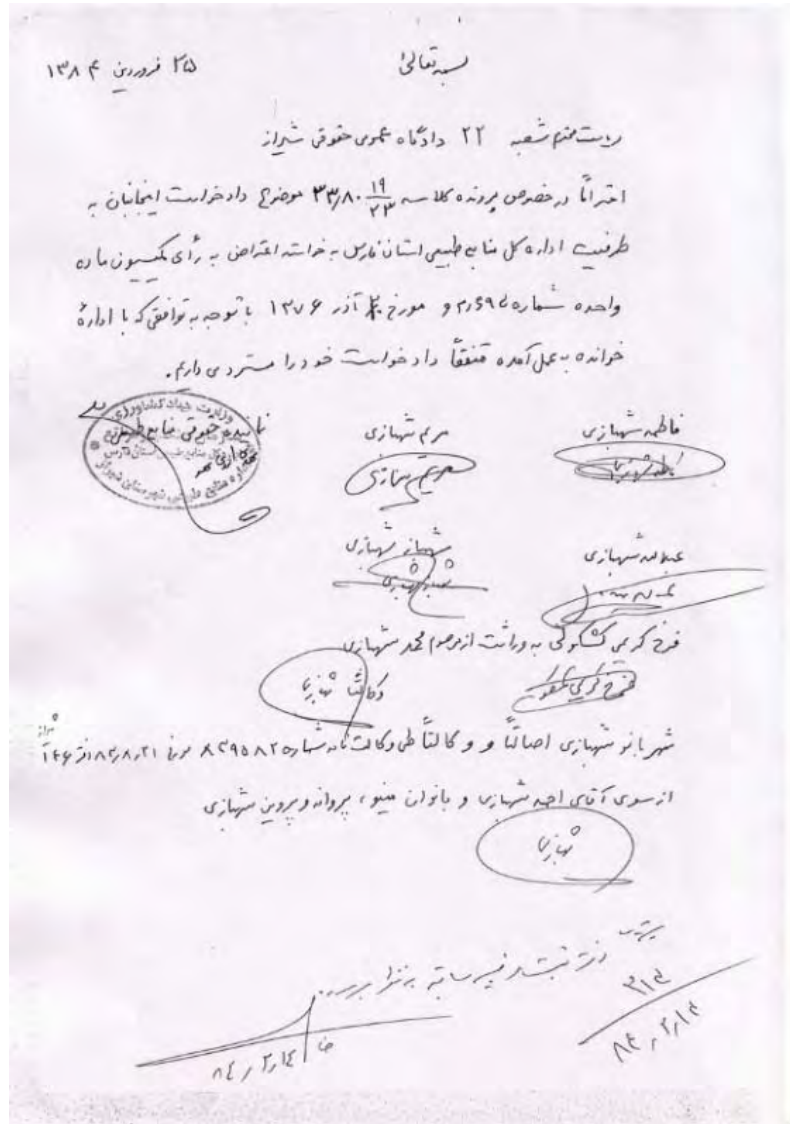 بسمه تعالی
۲۵ فروردین ۱۳۸۴
ریاست محترم شعبه ۲۲ دادگاه عمومی حقوقی شیراز
احتراماً در خصوص پرونده کلاسه ۳۳/۸۰ ۱۹/۲۳ موضوع دادخواست اینجانبان به
طرفیت اداره کل منابع طبیعی استان فارس به خواسته اعتراض به رأی کمیسیون ماده
واحده شماره و مورخ آذر ۱۳۷۶ با توجه به توافقی که با اداره
خوانده به عمل آمده متفقاً دادخواست خود را مسترد می داریم.
فاطمه شهبازی مریم شهبازی نماینده حقوقی منابع طبیعی
وزارت جهاد کشاورزی
اداره منابع طبیعی شهرستان شیراز
مریم شهبازی
عبدالله شهبازی شهناز شهبازی
فرخ کریمی کشکولی به وراثت از مرحوم محمد شهبازی
فرخ کریمی کشکولی وکالتاً شهبازی
شهربانو شهبازی اصالتاً و وکالتاً طی وکالت نامه شماره مورخ ۸۳/۸/۲۱ شیراز
از سوی آقای احمد شهبازی و بانوان مینو، پروانه و پروین شهبازی
شهبازی
دفتر ثبت و به نظر برسد
۸۴/۲/۱۴